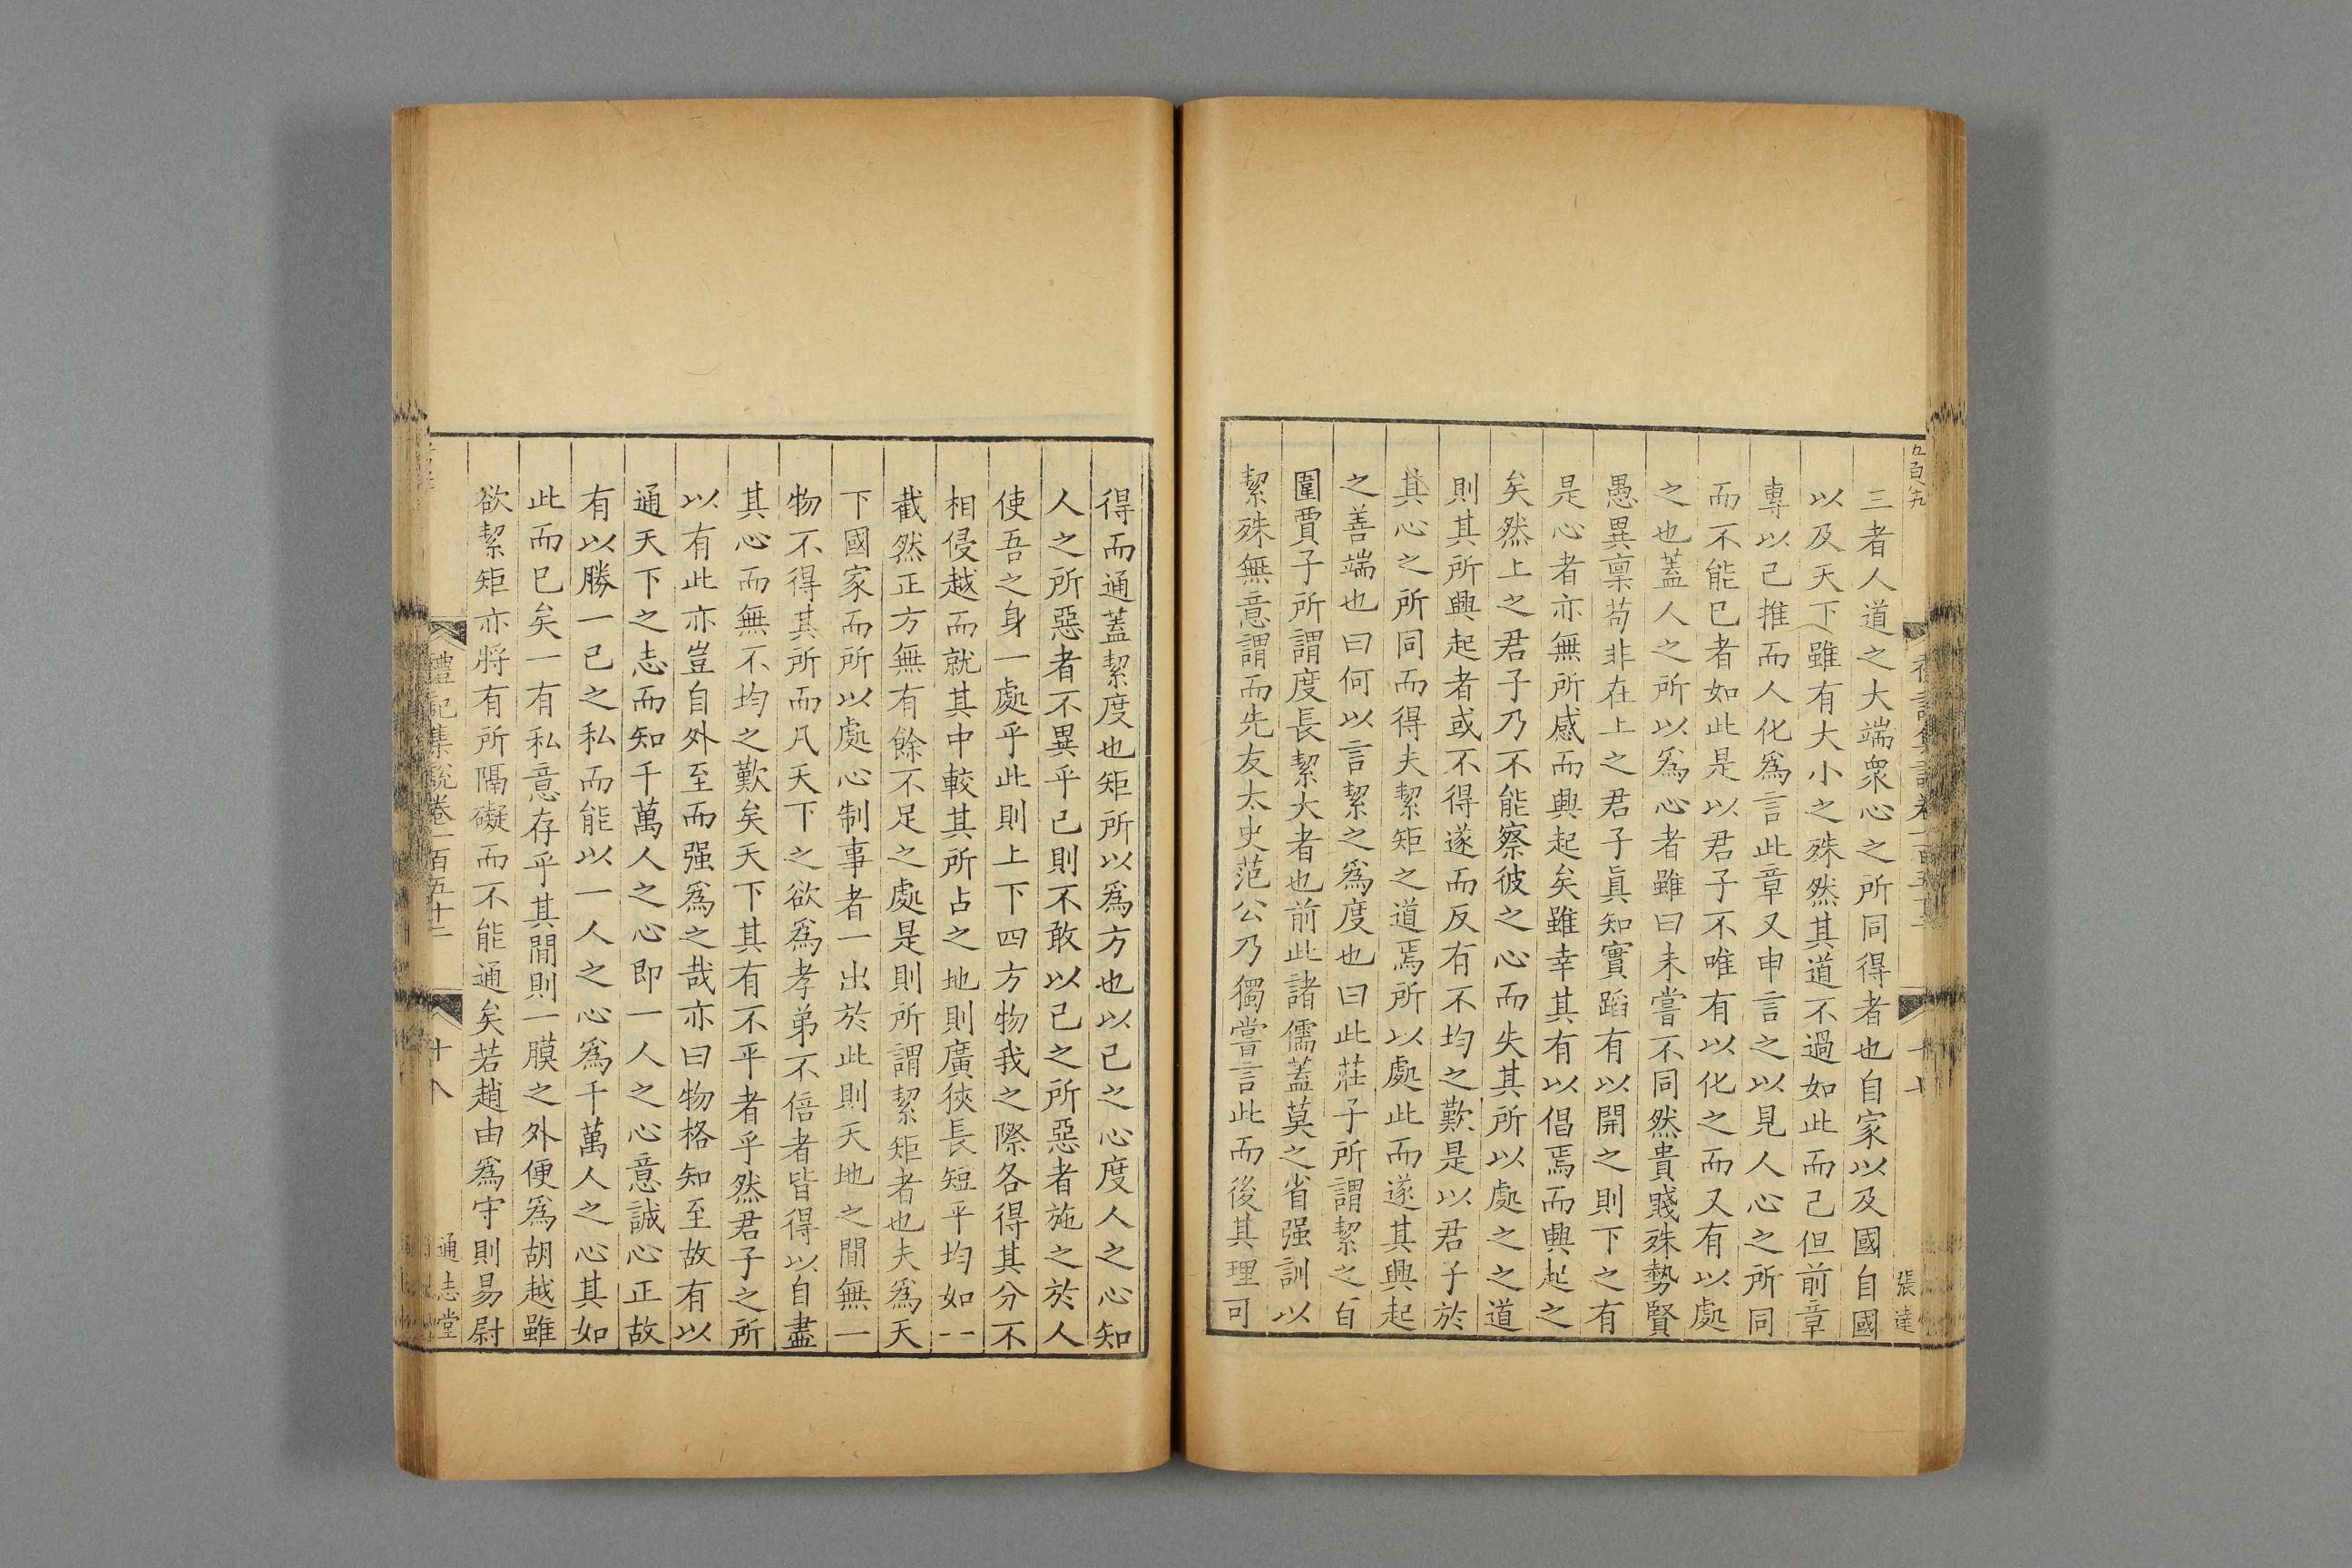 三者人道之大端衆心之所同得者也自家以及國自國
以及天下雖有大小之殊然其道不過如此而已但前章
專以己推而人化爲言此章又申言之以見人心之所同
而不能已者如此是以君子不唯有以化之而又有以處
之也蓋人之所以爲心者雖曰未嘗不同然貴賤殊勢賢
愚異稟苟非在上之君子眞知實蹈有以開之則下之有
是心者亦無所感而興起矣雖幸其有以倡焉而興起之
矣然上之君子乃不能察彼之心而失其所以處之之道
則其所興起者或不得遂而反有不均之歎是以君子於
其心之所同而得夫絜矩之道焉所以處此而遂其興起
之善端也曰何以言絜之爲度也曰此莊子所謂絜之百
圍賈子所謂度長絜大者也前此諸儒蓋莫之省强訓以
絜殊無意謂而先友太史范公乃獨嘗言此而後其理可
張達
得而通蓋絜度也矩所以爲方也以己之心度人之心知
人之所惡者不異乎己則不敢以己之所惡者施之於人
使吾之身一處乎此則上下四方物我之際各得其分不
相侵越而就其中較其所占之地則廣狹長短平均如一
截然正方無有餘不足之處是則所謂絜矩者也夫爲天
下國家而所以處心制事者一出於此則天地之閒無一
物不得其所而凡天下之欲爲孝弟不倍者皆得以自盡
其心而無不均之歎矣天下其有不平者乎然君子之所
以有此亦豈自外至而强爲之哉亦曰物格知至故有以
通天下之志而知千萬人之心即一人之心意誠心正故
有以勝一己之私而能以一人之心爲千萬人之心其如
此而已矣一有私意存乎其閒則一膜之外便爲胡越雖
欲絜矩亦將有所隔礙而不能通矣若趙由爲守則易尉
禮記集說卷一百五十二
十八
通志堂